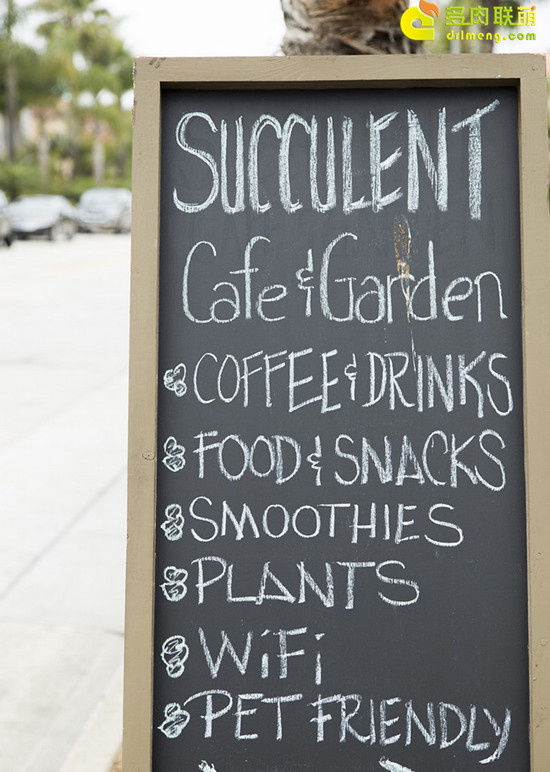 多肉联萌
drlmeng.com
SUCCULENT
Cafe & Garden
COFFEE & DRINKS
FOOD & SNACKS
SMOOTHIES
PLANTS
WiFi
PET FRIENDLY